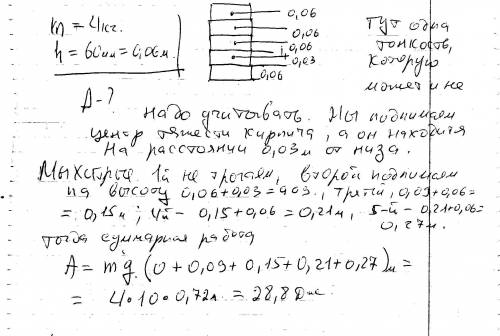 m = 4кг.
h = 60мм = 0,06м.
А-?
0,06
0,06
0,06
0,03
0,06
Тут одна
тонкость,
которую
может и не
надо учитывать. Мы поднимаем
центр тяжести кирпича, а он находится
на расстоянии 0,03м от низа.
1й не трогаем, второй поднимаем
на высоту 0,06+0,03=0,09, третий, 0,09+0,06=
= 0,15м; 4й - 0,15+0,06=0,21м, 5-й - 0,21+0,06=
0,27м.
тогда суммарная работа
A = mg (0+0,09+0,15+0,21+0,27)м =
= 4·10·0,72м = 28,8 Дж.